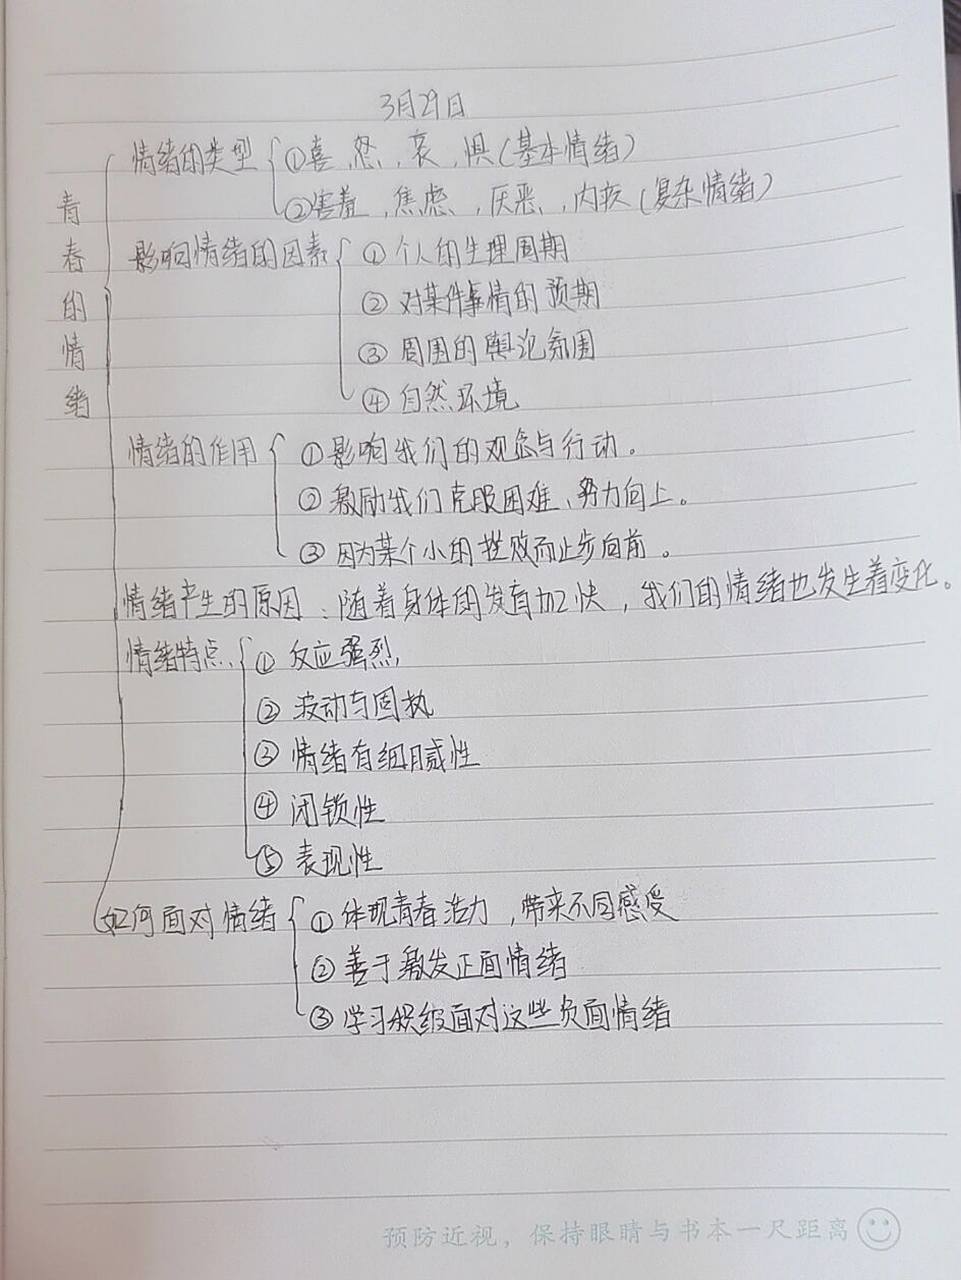 3月29日
青春的情绪
情绪的类型
①喜、怒、哀、惧(基本情绪)
②害羞、焦虑、厌恶、内疚(复杂情绪)
影响情绪的因素
①个人的生理周期
②对某件事情的预期
③周围的舆论氛围
④自然环境
情绪的作用
①影响我们的观念与行动。
②激励我们克服困难、努力向上。
③因为某个小的挫败而止步向前。
情绪产生的原因:随着身体的发育加快,我们的情绪也发生着变化。
情绪特点
①反应强烈
②波动与固执
③情绪有细腻性
④闭锁性
⑤表现性
如何面对情绪
①体现青春活力,带来不同感受
②善于激发正面情绪
③学习积极面对这些负面情绪
预防近视，保持眼睛与书本一尺距离